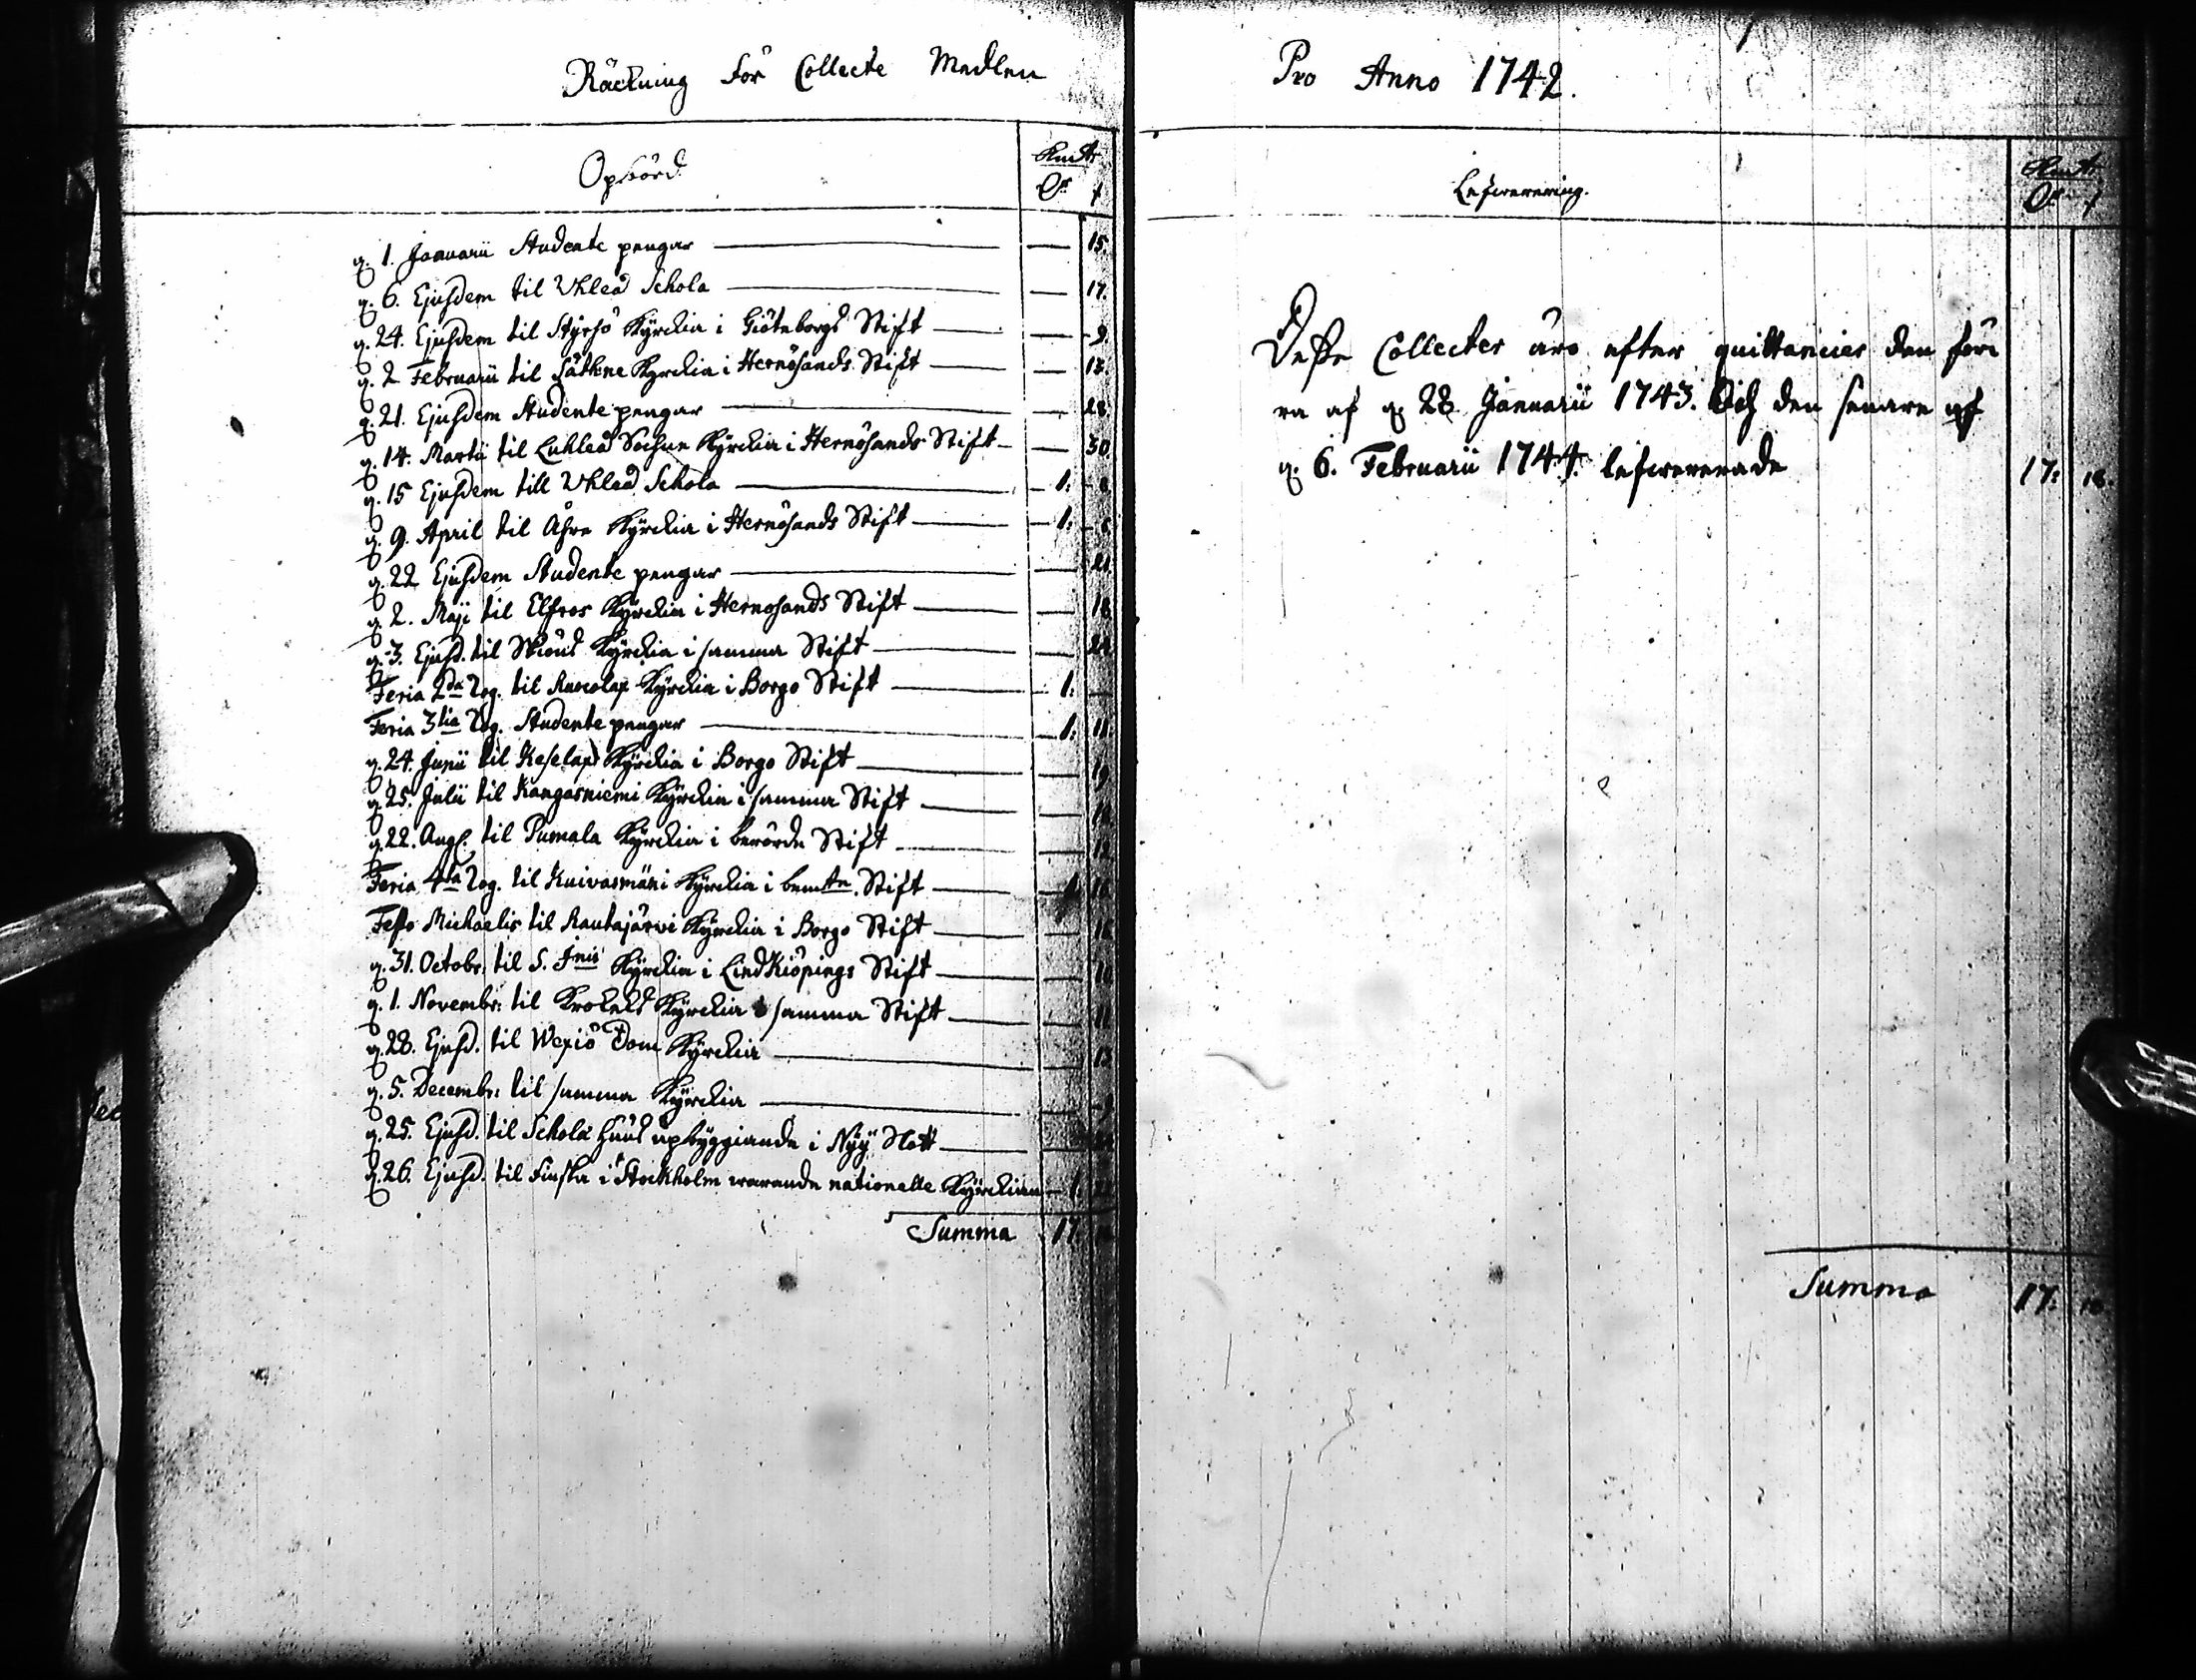 Räckning för Collecte Medlen
Opbörd
Kmt
1. Januarii Studente pengar — 15.
6. Ejusdem til Uhleå Schola — 17.
24. Ejusdem til Styrsö Kyrckia i Giöteborgs Stift — 9.
2 Februarii til Sättne Kyrckia i Hernösands Stift
21. Ejusdem Studente pengar — 28.
14. Martii til Luhleå Sochne Kyrckia i Hernösands Stift — 30
15 Ejusdem till Uhleå Schola — 1:
9. April til Åhre Kyrckia i Hernösands Stift — 1:
22 Ejusdem Studente pengar — 21.
2. Maji til Elfros Kyrckia i Hernosands Stift — 18
3. Ejusd. til Kyrckia i samma Stift
Feria 2da til Kyrckia i Borgo Stift — 1:
Feria 3tia Studente pengar — 1: 11.
24. Junii til Keselax Kyrckia i Borgo Stift — 19
25. Julii til Kangasniemi Kyrckia i samma Stift
22. Aug. til Pumala Kyrckia i berörde Stift — 12
Feria 4ta til Kuivasmäki Kyrckia i bemte Stift
Festo Michaelis til Rautajärvi Kyrckia i Borgo Stift — 16
31. Octobr. til S. Kyrckia i LindKiöpings Stift — 10
1. Novembr: til Krokeks Kyrckia i samma Stift — 11
28. Ejusd. til Wexiö Dom Kyrckia — 13
5. Decembr: til samma Kyrckia — 9
25. Ejusd. til Schola huus upbyggiande i Nyy Slott
26. Ejusd. til Finska i Stockholm warande nationelle Kyrckian — 1:
Summa 17.
Pro Anno 1742.
Lefwerering.
Kmt
Desse Collecter äro efter quittancier den förra
ra af 28 Januarii 1743. Och den senare af
6. Februarii 1744. lefwererade 17: 18.
Summa 17: 18